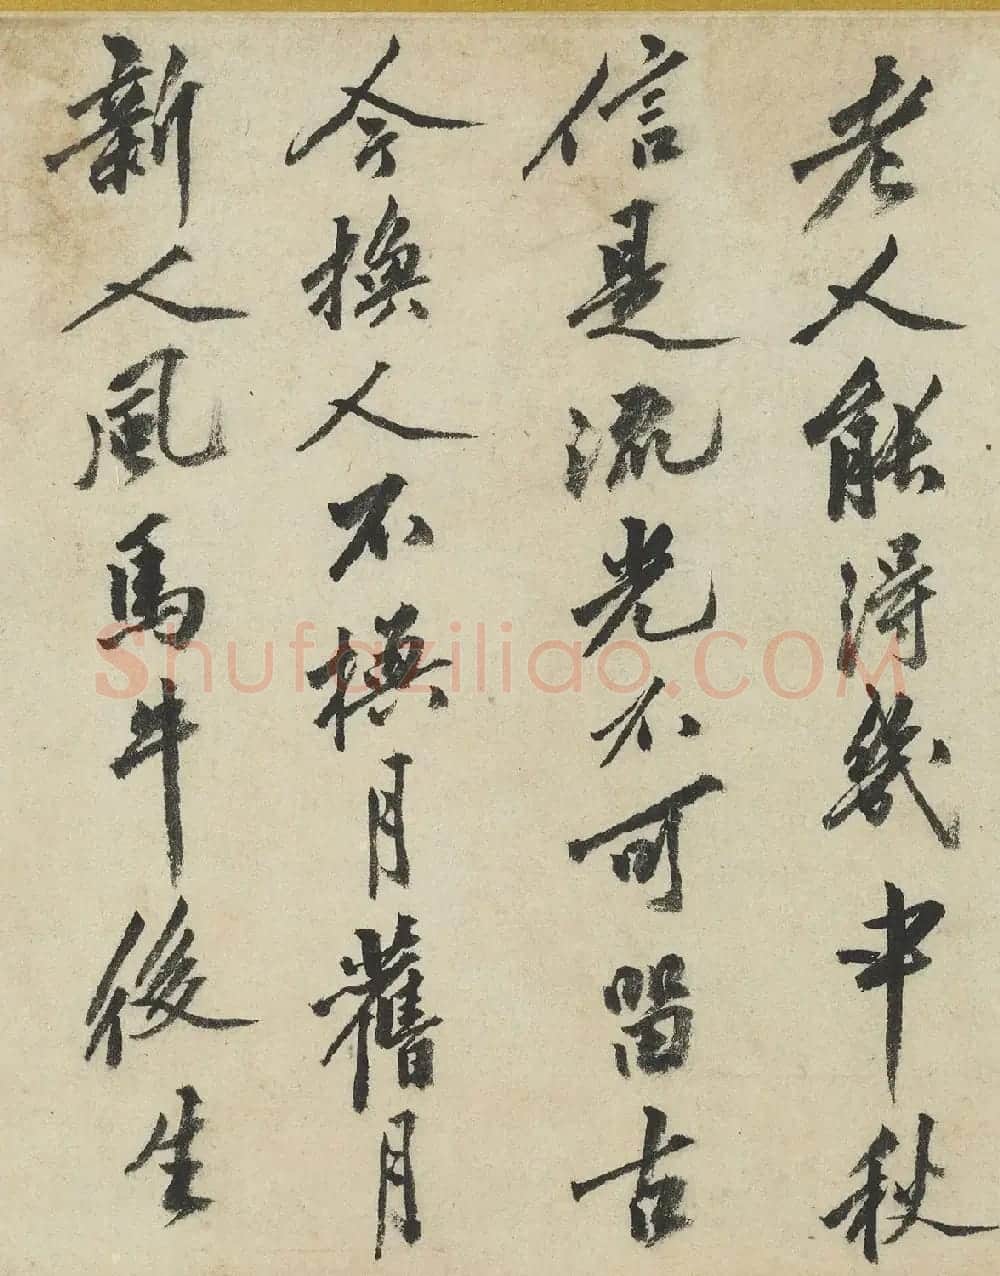 老人能得幾中秋
信是流光不可留古
今換人不換月舊月
新人風馬牛後生
Shufaziliao.COM